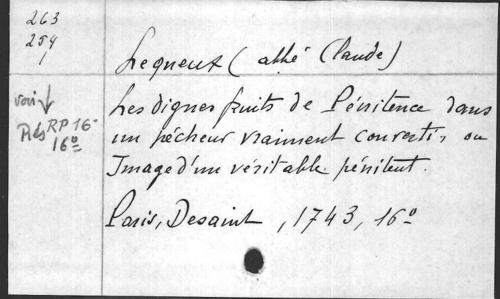 263
254
/
Lequeux (abbé Claude)
voir ↓
Rés RP 16-
16º
Les dignes fruits de Pénitence dans
un pécheur vraiment converti, ou
Image d'un véritable pénitent.
Paris, Desaint, 1743, 16º